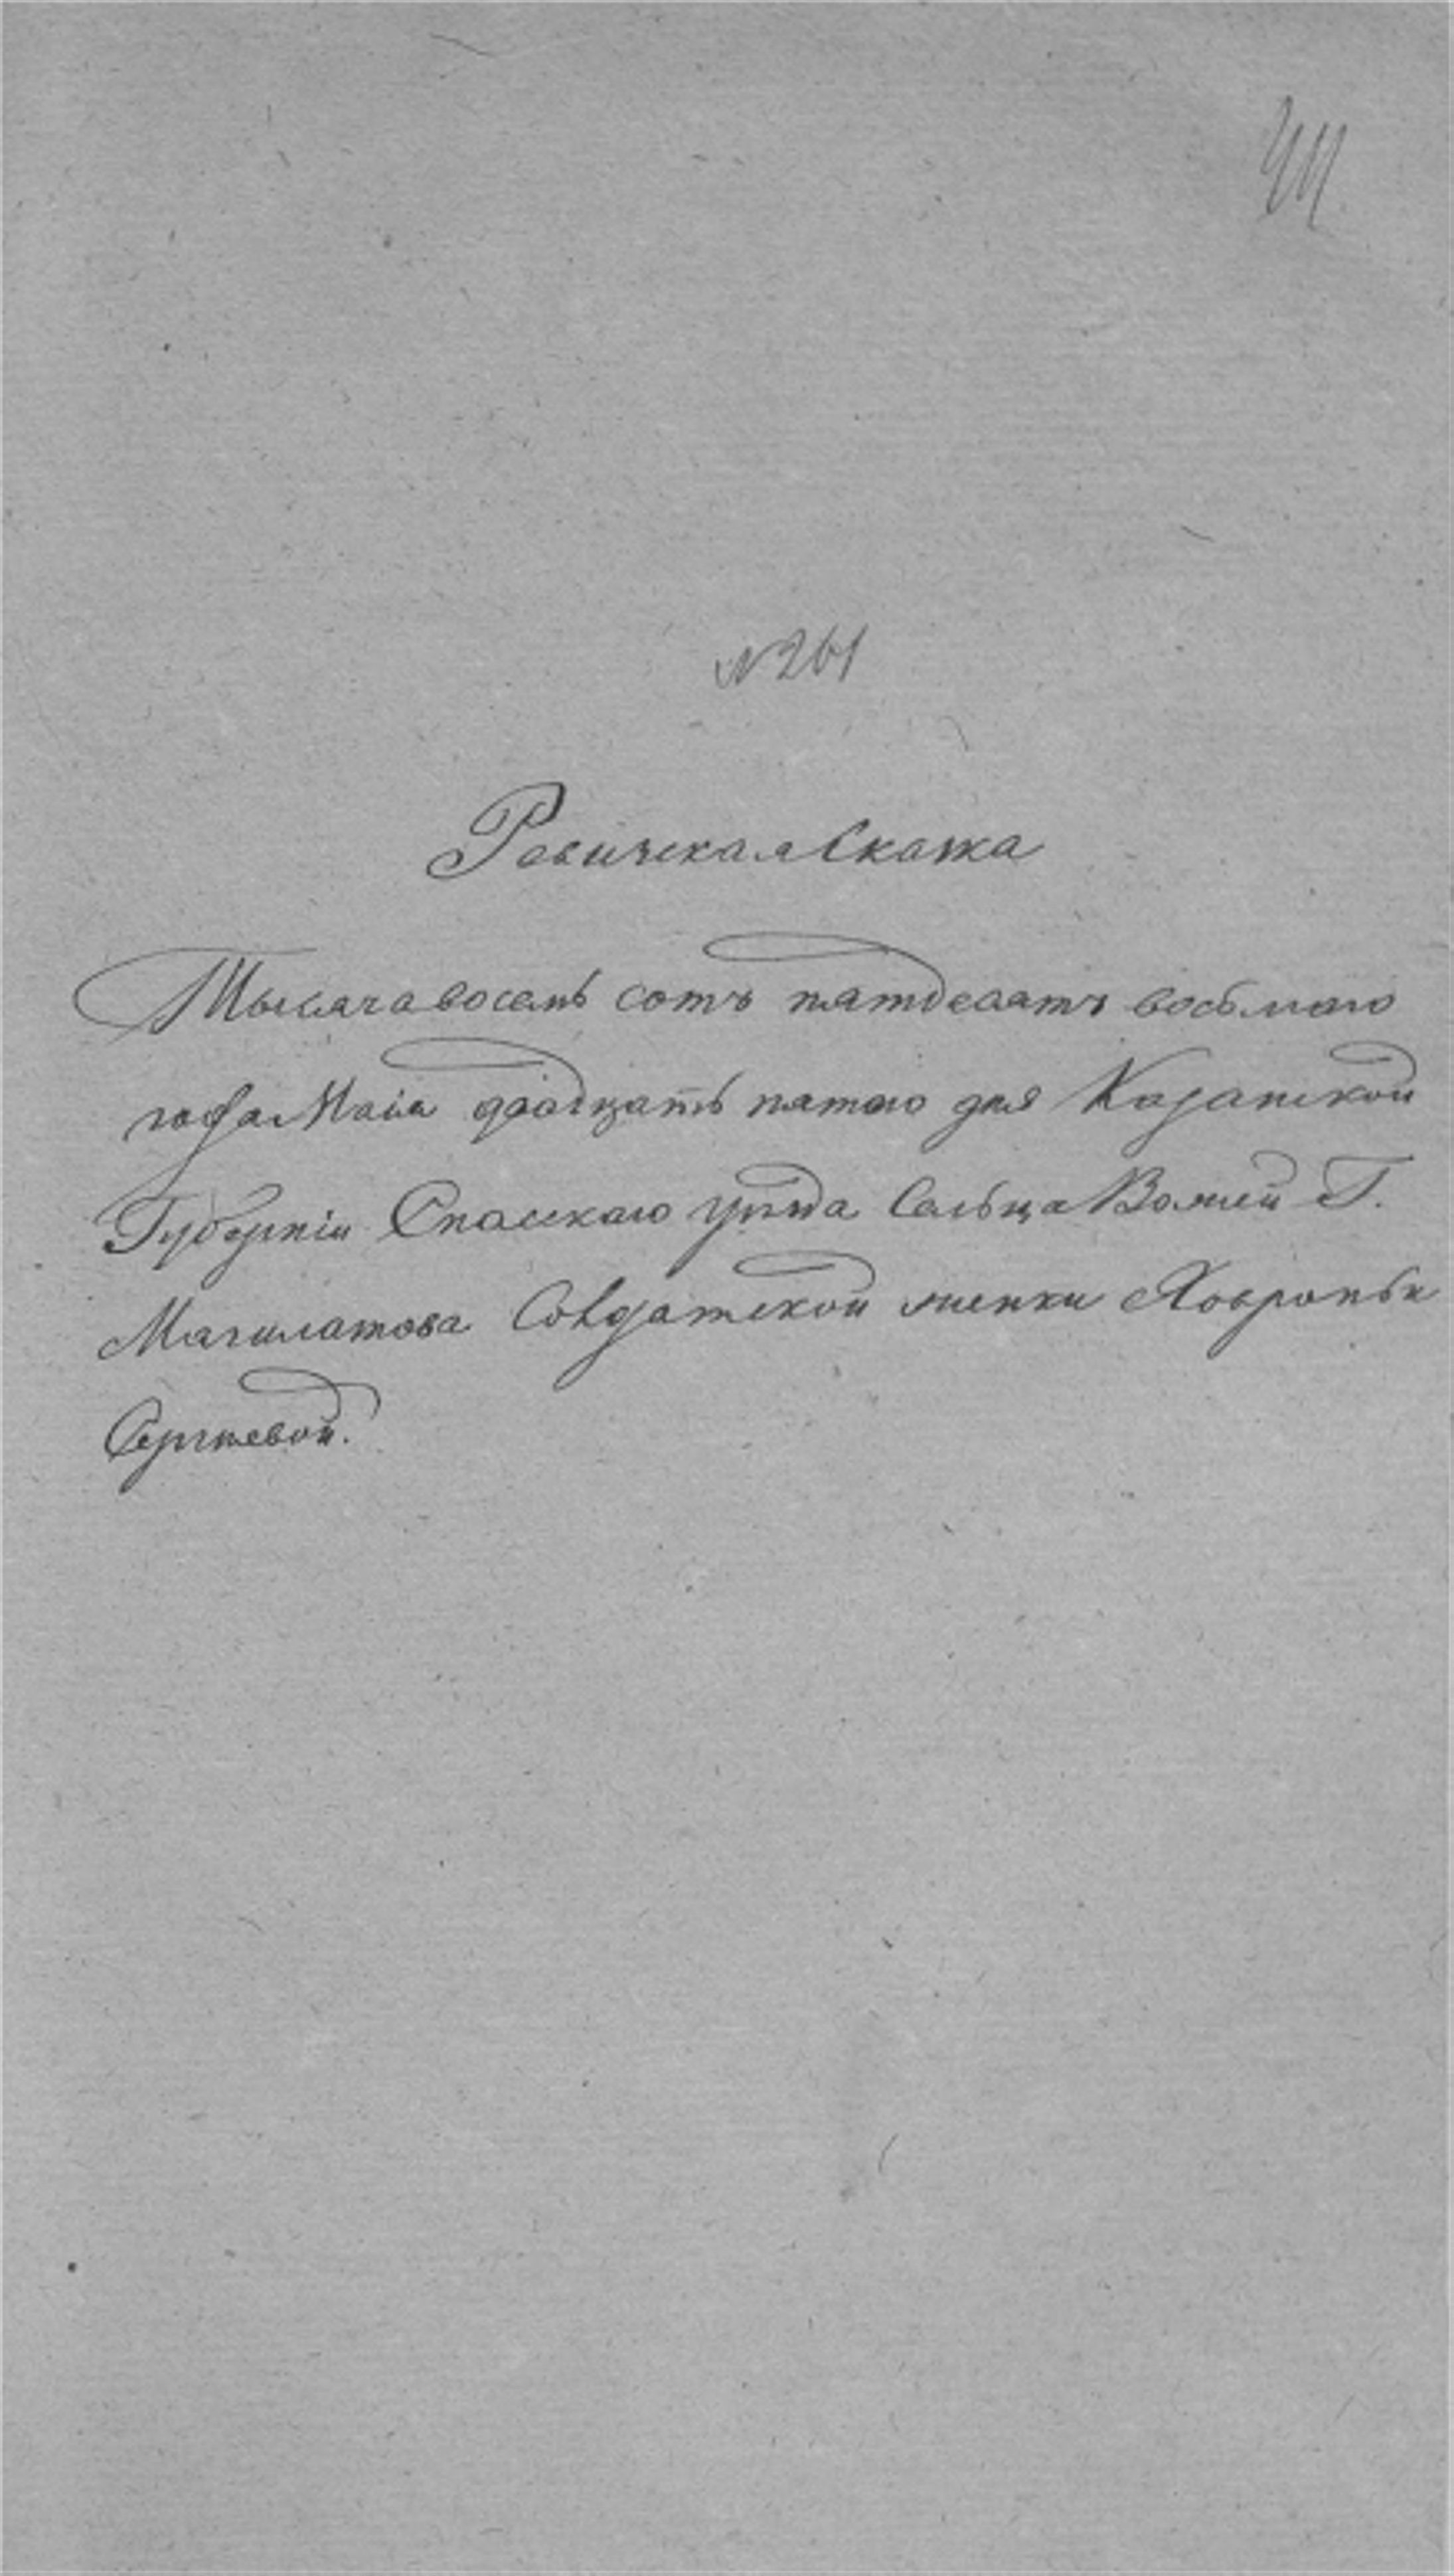 № 261
Ревичская Скаска
Тысяча восемь сотъ пятдесятъ восьмаго
года Маія двадцать пятаго дня Казанской
Губерніи Спасскаго уѣзда Сельца Волжей Г.
Магилатова Солдатской женки Хавроньи
Сергѣевой.